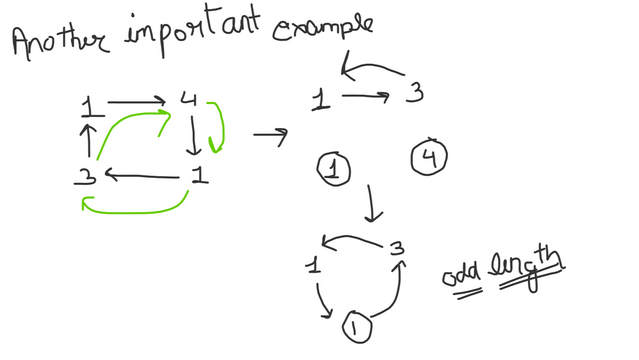 Another important example
1 → 4
3 ← 1
→
1 → 3
1 4
1 3
1
odd length